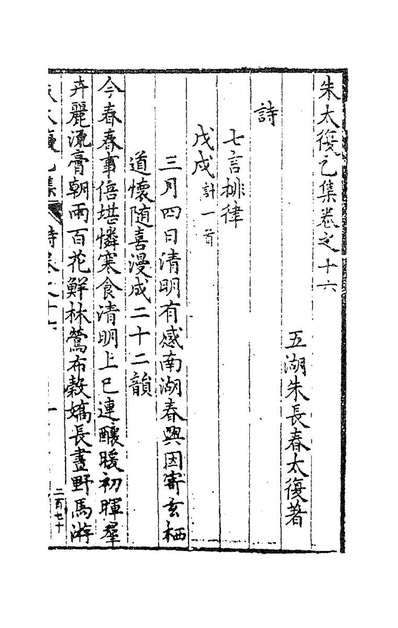 朱太復乙集卷之十六
五湖朱長春太復著
詩
七言排律
戊戌計一首
三月四日清明有感南湖春興因寄玄栖
道懷随喜漫成二十二韻
今春春事倍堪憐寒食清明上巳連釀暖初暉羣
卉麗流膏朝雨百花鮮林鶯布糓嬌長晝野馬游
朱太復乙集
詩卷之十六
二百七十